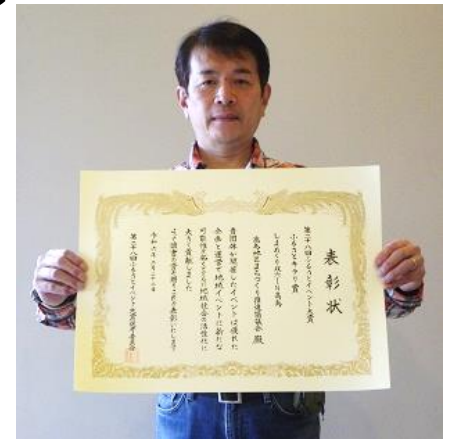 表彰状
第二十八回ふるさとイベント大賞
ふるさとキラリ賞
しまめぐり
高島
高島地区まちづくり推進協議会 殿
貴団体が開催したイベントは優れた
企画と運営で地域イベントに新たな
可能性を拓くとともに地域社会の活性化に
大きく貢献しました
よって
表彰いたします
令和六年二月二十二日
第二十八回ふるさとイベント大賞選考委員会